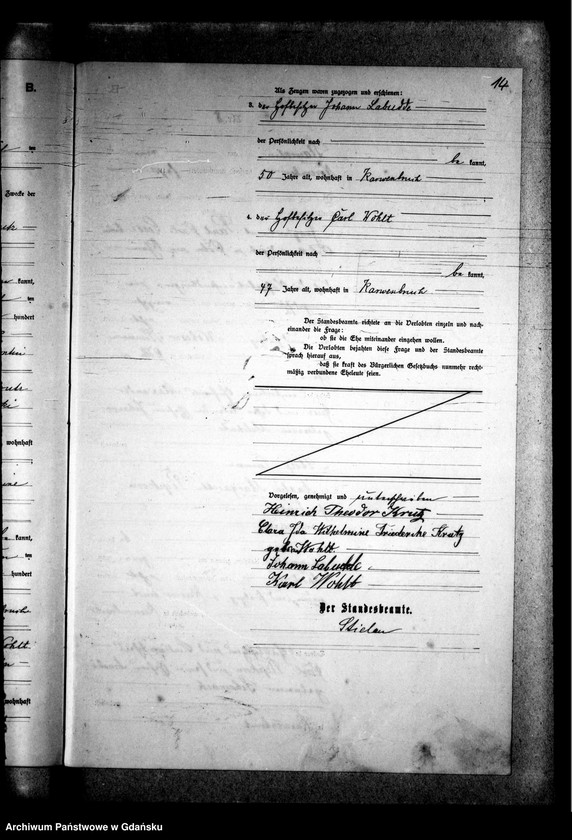 14
B.
Als Zeugen waren zugezogen und erschienen:
3. der Hofbesitzer Johann Labudde
der Persönlichkeit nach
be kannt,
50 Jahre alt, wohnhaft in Karwenbruch
4. der Hofbesitzer Carl Wohlt
der Persönlichkeit nach
be kannt,
47 Jahre alt, wohnhaft in Karwenbruch
Der Standesbeamte richtete an die Verlobten einzeln und nach-
einander die Frage:
ob sie die Ehe miteinander eingehen wollen.
Die Verlobten bejahten diese Frage und der Standesbeamte
sprach hierauf aus,
daß sie kraft des Bürgerlichen Gesetzbuchs nunmehr recht-
mäßig verbundene Eheleute seien.
Vorgelesen, genehmigt und unterschrieben
Heinrich Theodor Kratz
Clara Ida Wilhelmine Friedericke Kratz
geb. Wohlt
Johann Labudde
Karl Wohlt
Der Standesbeamte.
Zwecke der
kannt,
ten
hundert
wohnhaft
kannt,
ten
hundert
wohnhaft
Archiwum Państwowe w Gdańsku